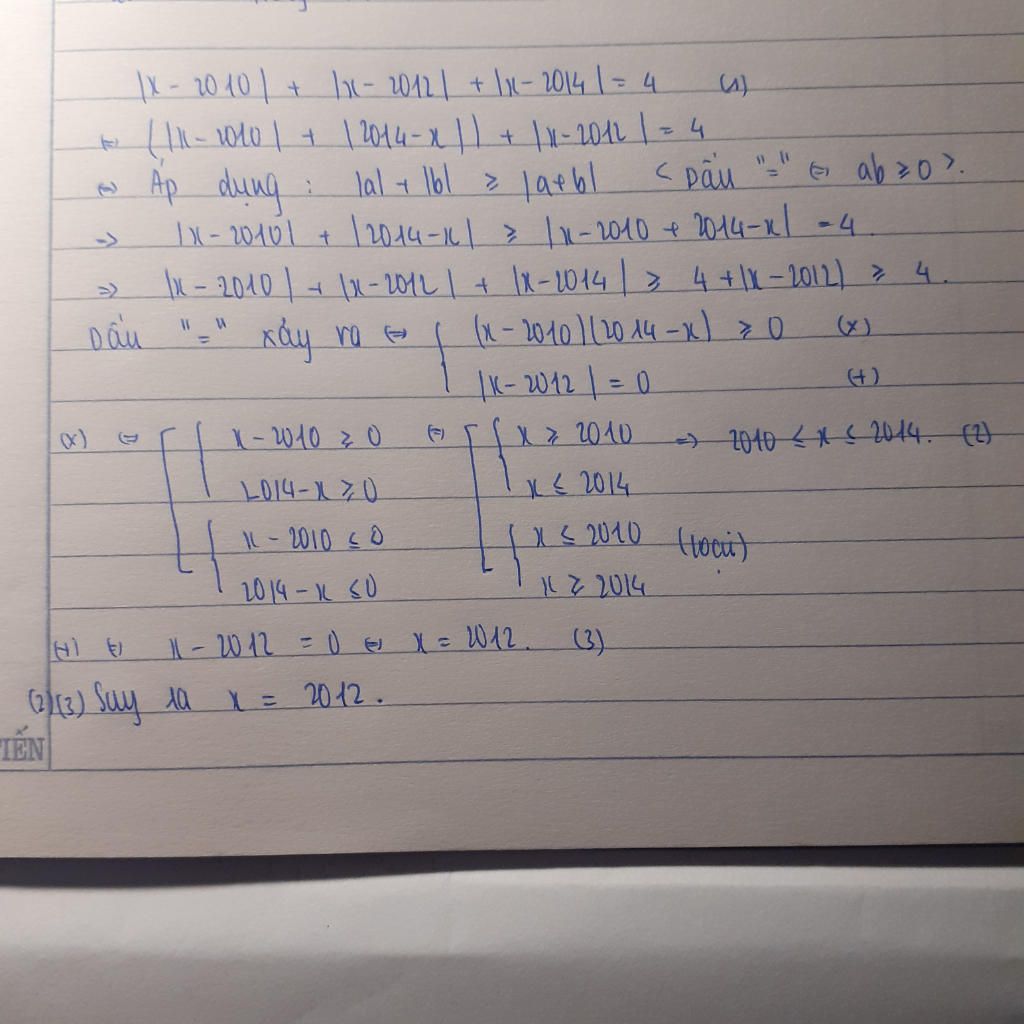 |x - 2010| + |x - 2012| + |x - 2014| = 4 (1)
⇔ (|x - 2010| + |2014 - x|) + |x - 2012| = 4
⇔ Áp dụng : |a| + |b| ≥ |a+b| < Dấu "=" ⇔ ab ≥ 0 >.
⇒ |x - 2010| + |2014 - x| ≥ |x - 2010 + 2014 - x| = 4.
⇒ |x - 2010| + |x - 2012| + |x - 2014| ≥ 4 + |x - 2012| ≥ 4.
Dấu "=" xảy ra ⇔ { (x - 2010)(2014 - x) ≥ 0 (x)
|x - 2012| = 0 (+)
(x) ⇔ [ { x - 2010 ≥ 0 ⇔ [ { x ≥ 2010 ⇒ 2010 ≤ x ≤ 2014. (2)
2014 - x ≥ 0 x ≤ 2014
{ x - 2010 ≤ 0 { x ≤ 2010 (loại)
2014 - x ≤ 0 x ≥ 2014
(+) ⇔ x - 2012 = 0 ⇔ x = 2012. (3)
(2)(3) Suy ra x = 2012.
TIẾN